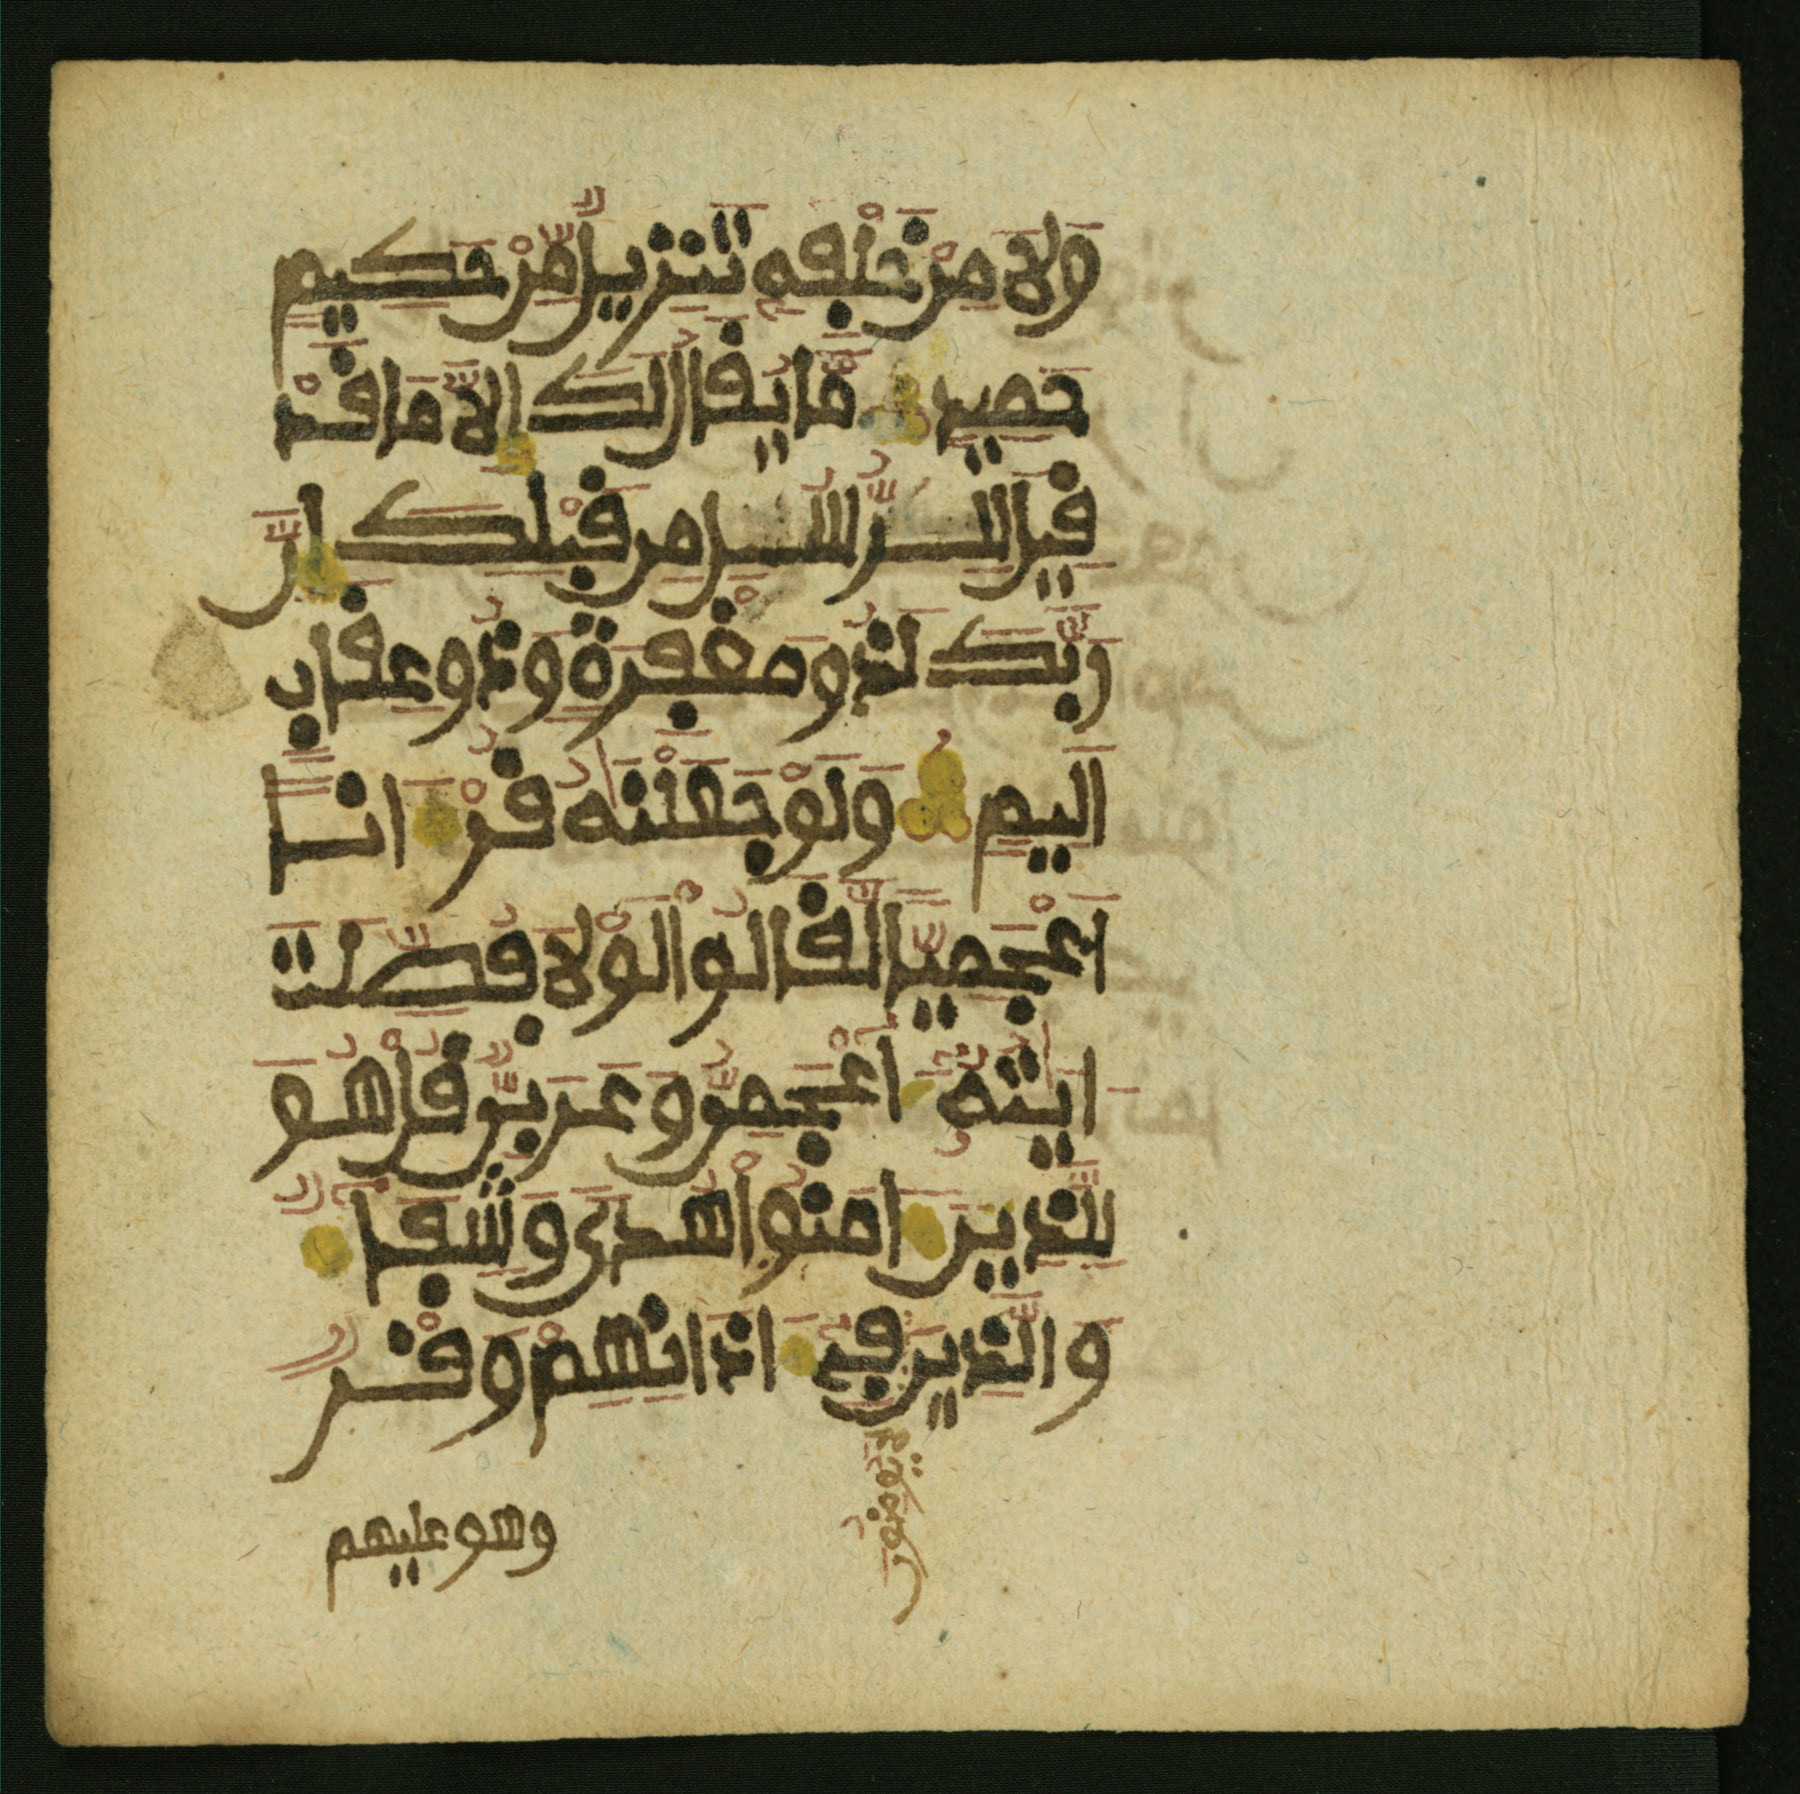 ولا من خلفه تنزيل من حكيم
حميد ما يقال لك الا ما قد
قيل للرسل من قبلك ان
ربك لذو مغفرة وذو عقاب
اليم ولو جعلنه قرءانا
اعجميا لقالوا لولا فصلت
ءايته ءاعجمي وعربي قل هو
للذين ءامنوا هدى وشفا
والذين في ءاذانهم وقر
لا يومنون
وهو عليهم